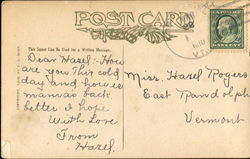 POST CARD
This Space Can Be Used for a Written Message.
Dear Hazel:- How
are you this cold
day and how is
mama's back
better I hope.
With Love
From
Hazel.
Miss. Hazel Rogers
East Randolph
Vermont